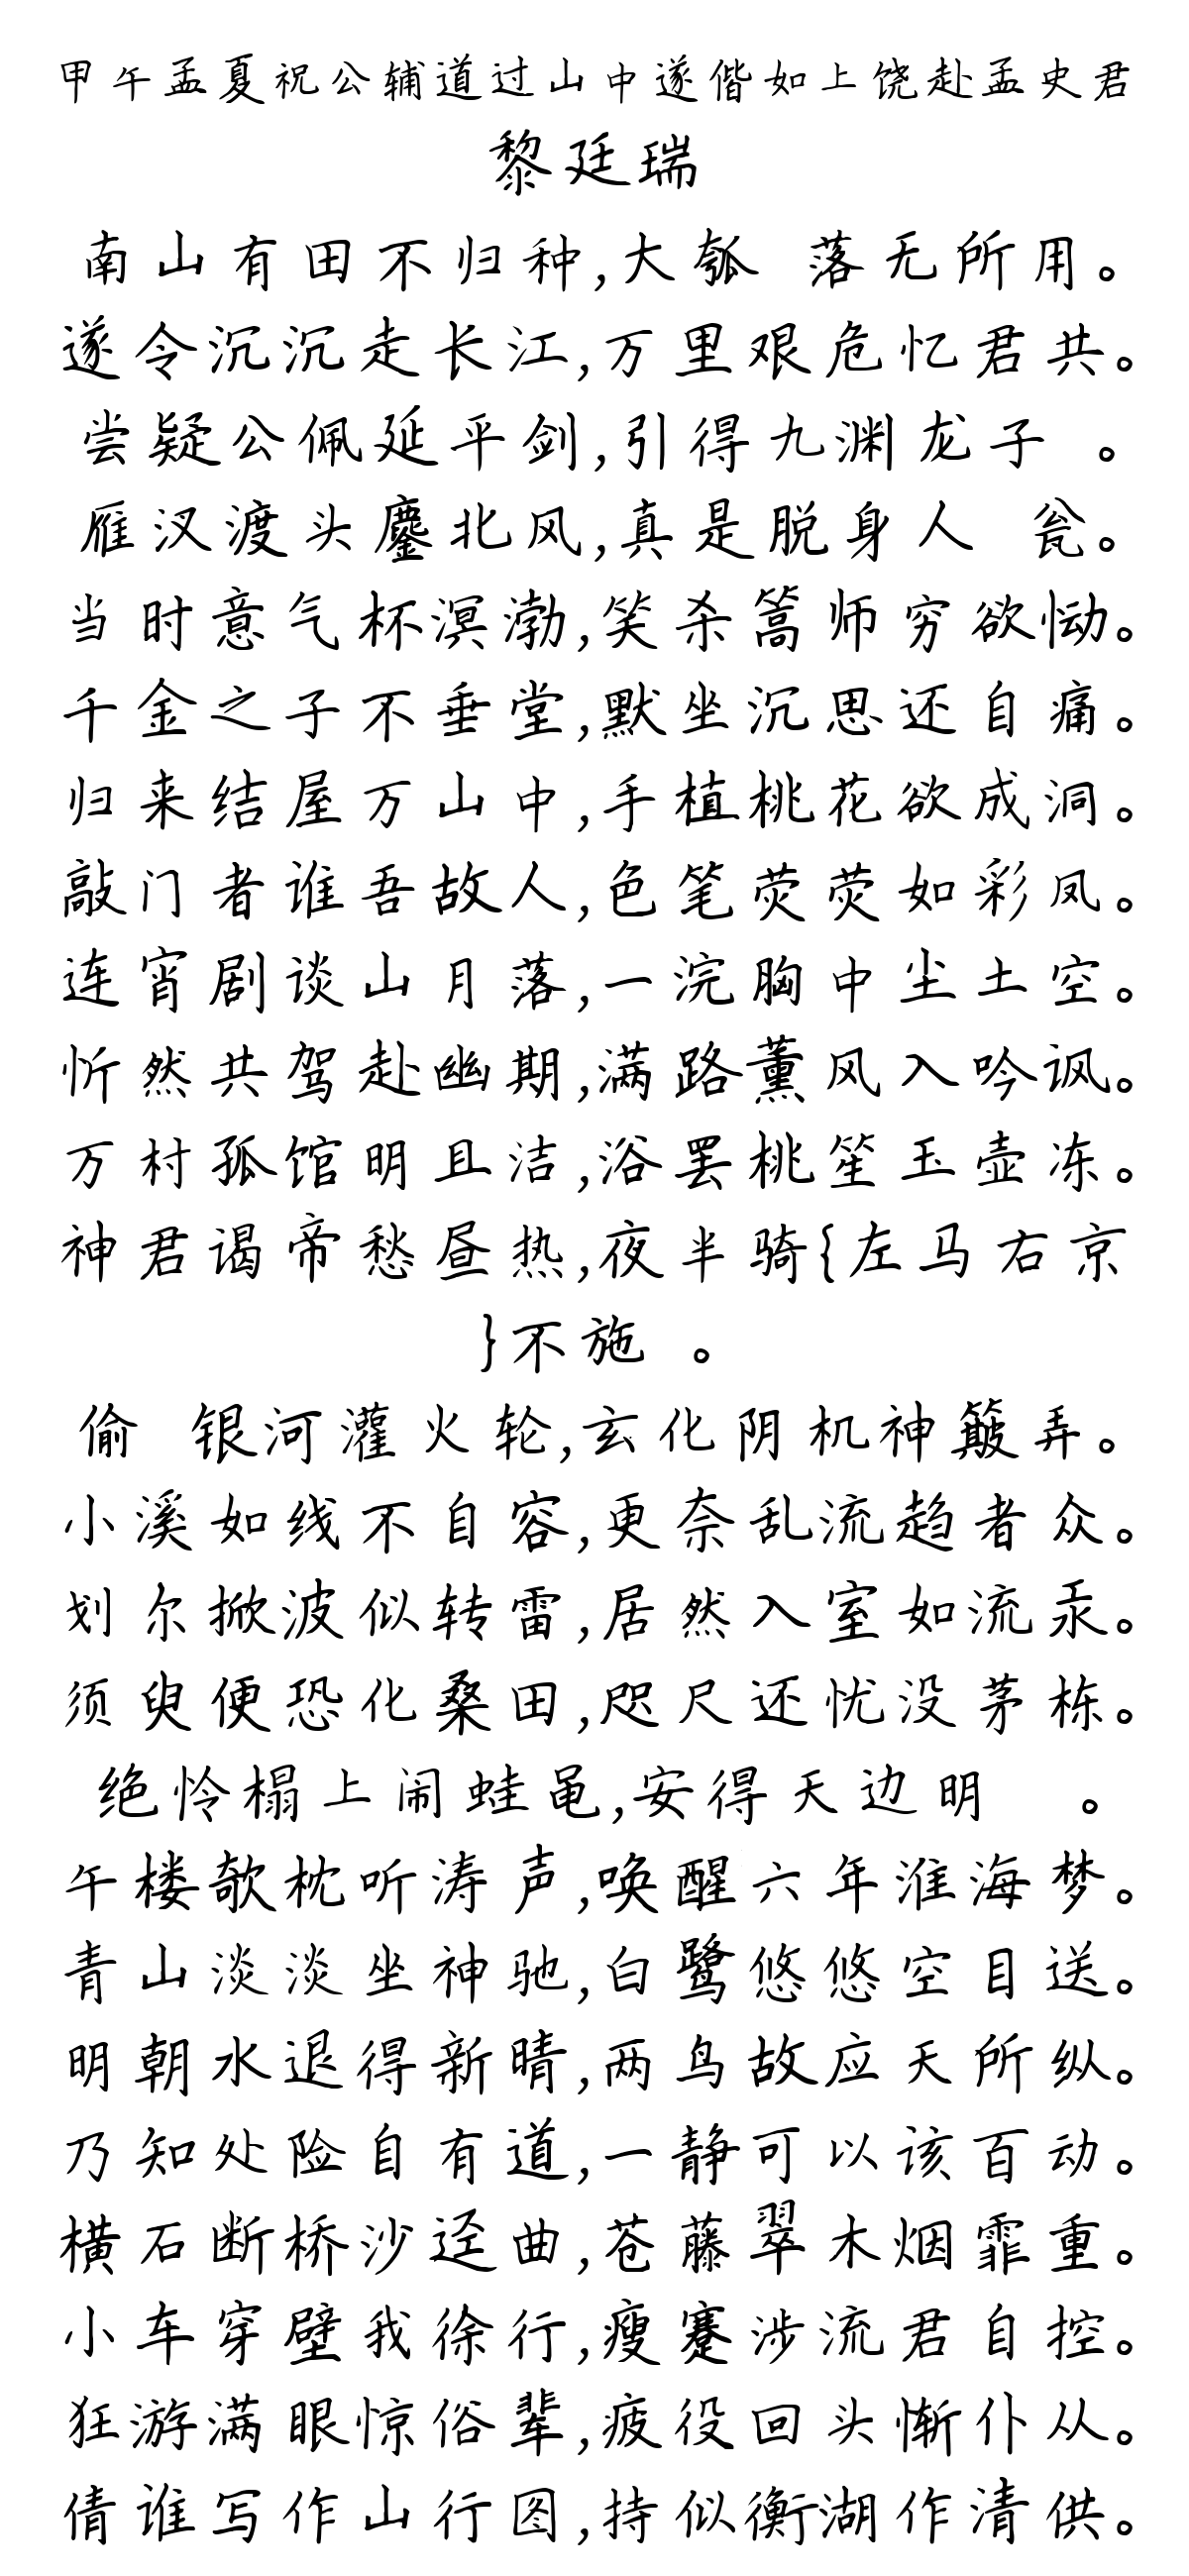 甲午孟夏祝公辅道过山中遂偕如上饶赴孟史君
黎廷瑞
南山有田不归种,大瓠 落无所用。
遂令沉沉走长江,万里艰危忆君共。
尝疑公佩延平剑,引得九渊龙子 。
雁汊渡头鏖北风,真是脱身人 瓮。
当时意气杯溟渤,笑杀篙师穷欲恸。
千金之子不垂堂,默坐沉思还自痛。
归来结屋万山中,手植桃花欲成洞。
敲门者谁吾故人,色笔荧荧如彩凤。
连宵剧谈山月落,一浣胸中尘土空。
忻然共驾赴幽期,满路薰风入吟讽。
万村孤馆明且洁,浴罢桃笙玉壶冻。
神君谒帝愁昼热,夜半骑{左马右京
}不施 。
偷 银河灌火轮,玄化阴机神簸弄。
小溪如线不自容,更奈乱流趋者众。
划尔掀波似转雷,居然入室如流汞。
须臾便恐化桑田,咫尺还忧没茅栋。
绝怜榻上闹蛙黾,安得天边明  。
午楼欹枕听涛声,唤醒六年淮海梦。
青山淡淡坐神驰,白鹭悠悠空目送。
明朝水退得新晴,两鸟故应天所纵。
乃知处险自有道,一静可以该百动。
横石断桥沙迳曲,苍藤翠木烟霏重。
小车穿壁我徐行,瘦蹇涉流君自控。
狂游满眼惊俗辈,疲役回头惭仆从。
倩谁写作山行图,持似衡湖作清供。